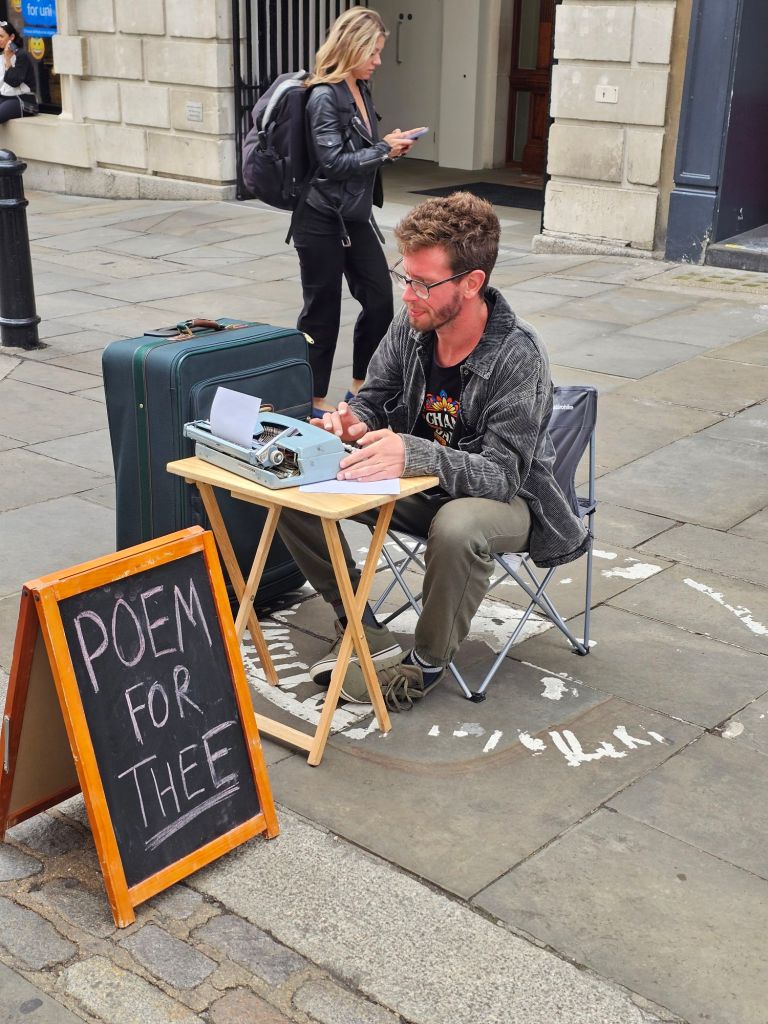 for uni
POEM
FOR
THEE
CHA